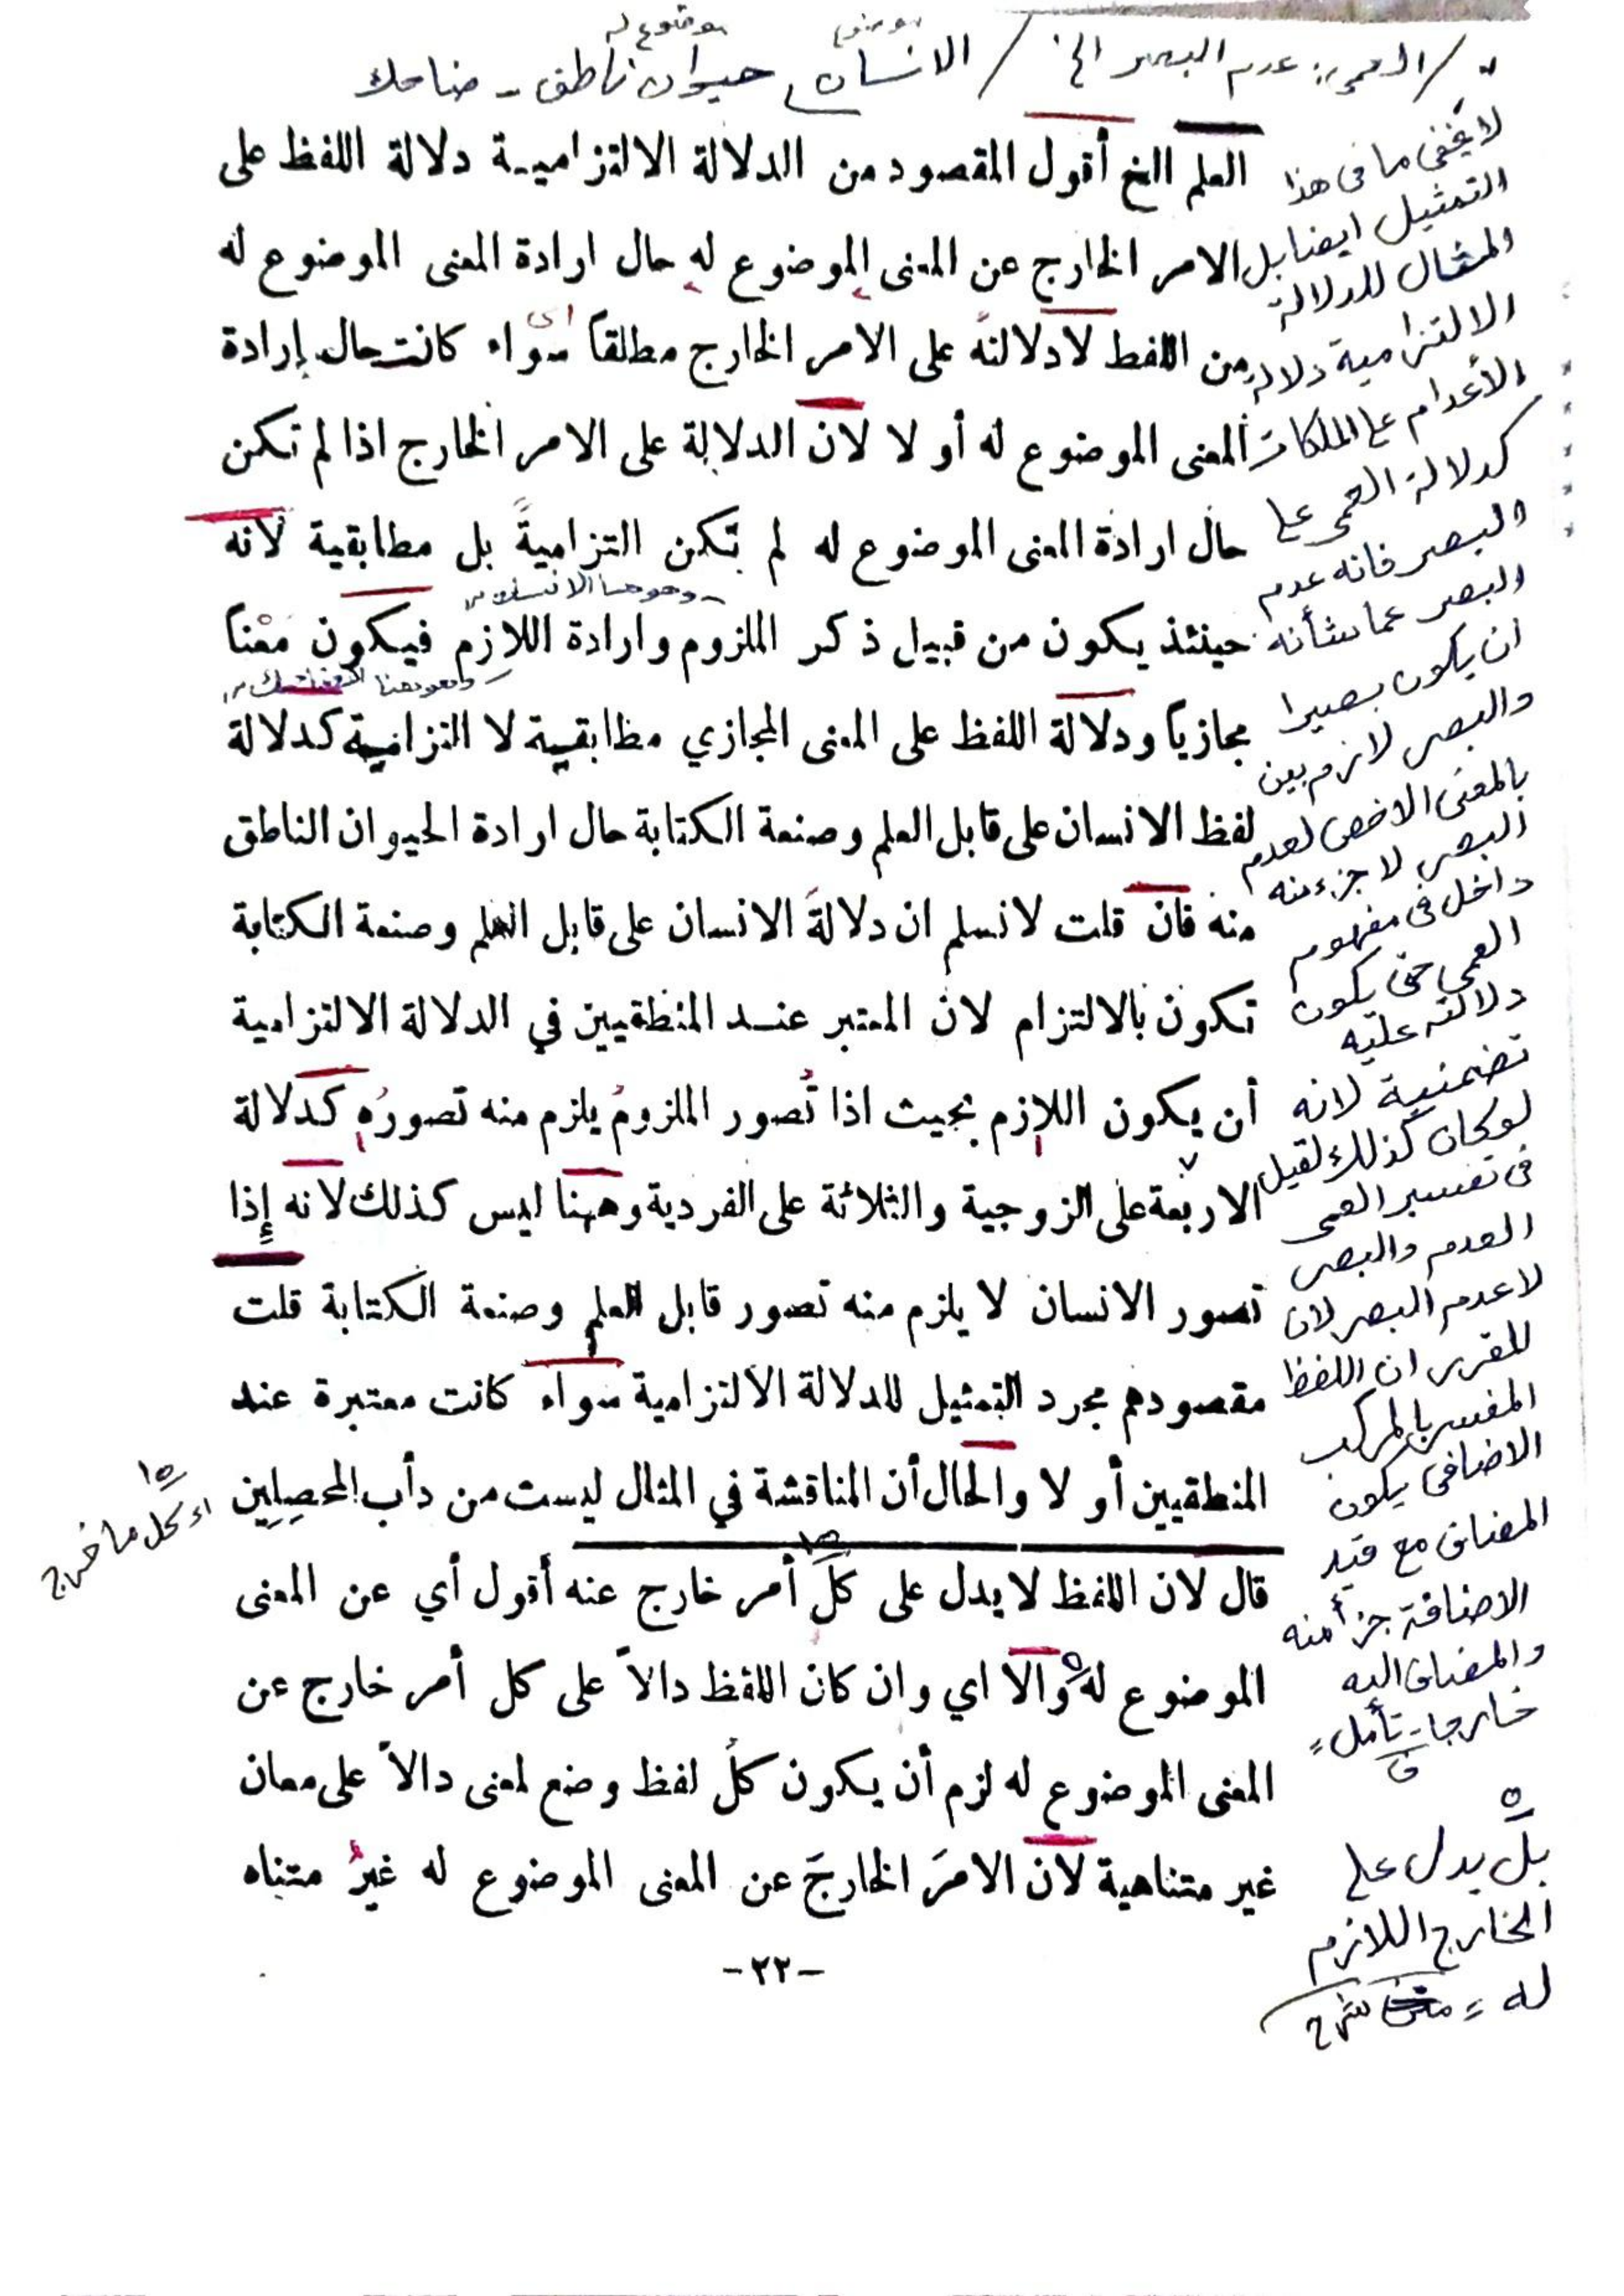 موضوع موضوع له
" / العمى: عدم البصر الخ / الانسان حيوان ناطق - ضاحك
العلم الخ أقول المقصود من الدلالة الالتزامية دلالة اللفظ على
الامر الخارج عن المعنى الموضوع له حال ارادة المعنى الموضوع له
اى
من اللفظ لا دلالته على الامر الخارج مطلقاً سواء كانت حال إرادة
المعنى الموضوع له أو لا لان الدلالة على الامر الخارج اذا لم تكن
حال ارادة المعنى الموضوع له لم تكن التزاميةً بل مطابقية لانه
وهو هنا الانسان
حينئذ يكون من قبيل ذكر الملزوم وارادة اللازم فيكون معْناً
وهو هنا
مجازياً ودلالة اللفظ على المعنى المجازي مطابقية لا التزامية كدلالة
لفظ الانسان على قابل العلم وصنعة الكتابة حال ارادة الحيوان الناطق
منه فان قلت لانسلم ان دلالةَ الانسان على قابل العلم وصنعة الكتابة
تكون بالالتزام لان المعتبر عند المنطقيين في الدلالة الالتزامية
أن يكون اللازم بحيث اذا تُصور الملزومُ يلزم منه تصورُه كدلالة
الاربعة على الزوجية والثلاثة على الفردية وههنا ليس كذلك لانه إِذا
تصور الانسان لا يلزم منه تصور قابل العلم وصنعة الكتابة قلت
مقصودهم مجرد التمثيل للدلالة الالتزامية سواء كانت معتبرة عند
المنطقيين أو لا والحال أن المناقشة في المثال ليست من دأب المحصِلِين
قال لان اللفظ لا يدل على كلِّ أمر خارج عنه أقول أي عن المعنى
الموضوع له والا اي وان كان اللفظ دالاً على كل أمر خارج عن
المعنى الموضوع له لزم أن يكون كلُ لفظ وضع لمعنى دالاً على معان
غير متناهية لان الامرَ الخارجَ عن المعنى الموضوع له غيرُ متناه
-٢٢-
لا يخفى ما فى هذا
التمثيل ايضا بل
المثال للدلالة
الالتزامية دلالة
الأعدام على الملكات
كدلالة العمى على
البصر فانه عدم
البصر عما شأنه
ان يكون بصيرا
والبصر لازم بين
بالمعنى الاخص لعدم
البصر لا جزء منه
داخل فى مفهوم
العمى حتى يكون
دلالته عليه
تضمنية لانه
لو كان كذلك لقيل
فى تفسير العمى
العدم والبصر
لا عدم البصر لان
المقرر ان اللفظ
المفسر بالمركب
الاضافى يكون
المضاف مع قيد
الاضافة جزأ منه
والمضاف اليه
خارجا - تأمل =
بل يدل على
الخارج اللازم
له = شرح
اى كل ما خرج